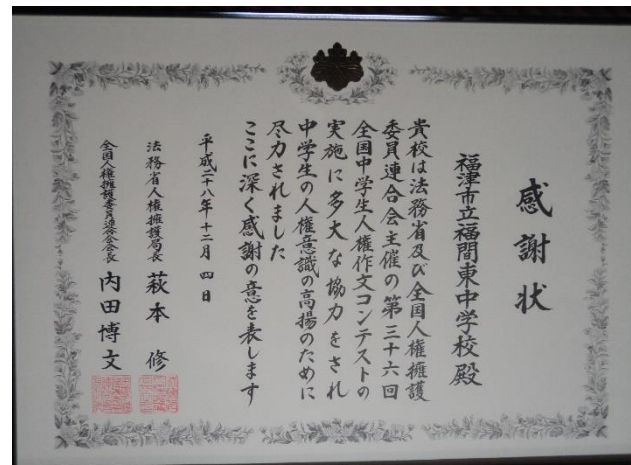 感謝状
福津市立福間東中学校殿
貴校は法務省及び全国人権擁護
委員連合会主催の第三十六回
全国中学生人権作文コンテストの
実施に多大な協力をされ
中学生の人権意識の高揚のために
尽力されました
ここに深く感謝の意を表します
平成二十八年十二月四日
法務省人権擁護局長 萩本修
全国人権擁護委員連合会会長 内田博文